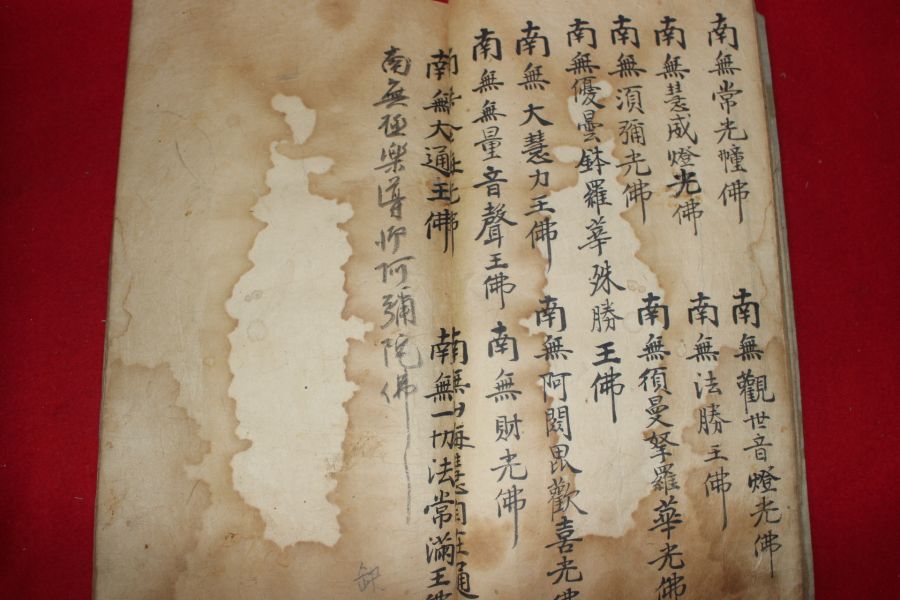 南無常光幢佛
南無觀世音燈光佛
南無慧威燈光佛
南無法勝王佛
南無須彌光佛
南無須曼拏羅華光佛
南無優曇鉢羅華殊勝王佛
南無大慧力王佛
南無阿閦毘歡喜光佛
南無無量音聲王佛
南無財光佛
南無大通王佛
南無一切法常滿王佛
南無極樂導师阿彌陀佛